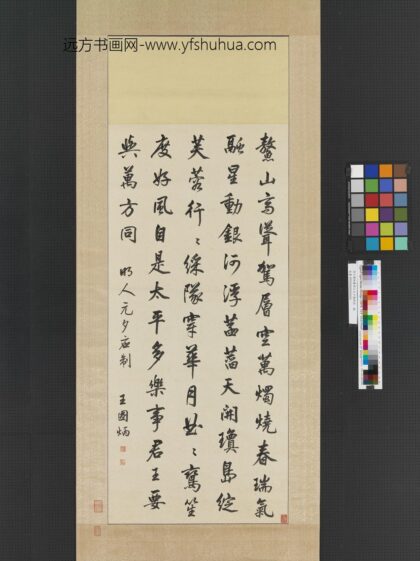 远方书画网-www.yfshuhua.com
鰲山高聳駕層空萬燭燒春瑞氣
融星動銀河浮菡萏天開瓊島綻
芙蓉行〻綵隊穿華月㘴〻鸞笙
度好風自是太平多樂事君王要
與萬方同 明人元夕應制
王圖炳